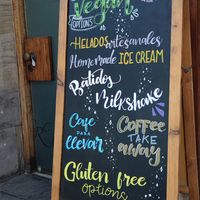 Vegan
OPTIONS
HELADOS artesanales
Homemade ICE CREAM
Batidos
Milkshake
Cafe
PARA
llevar
Coffee
TAKE
away
Gluten free
options